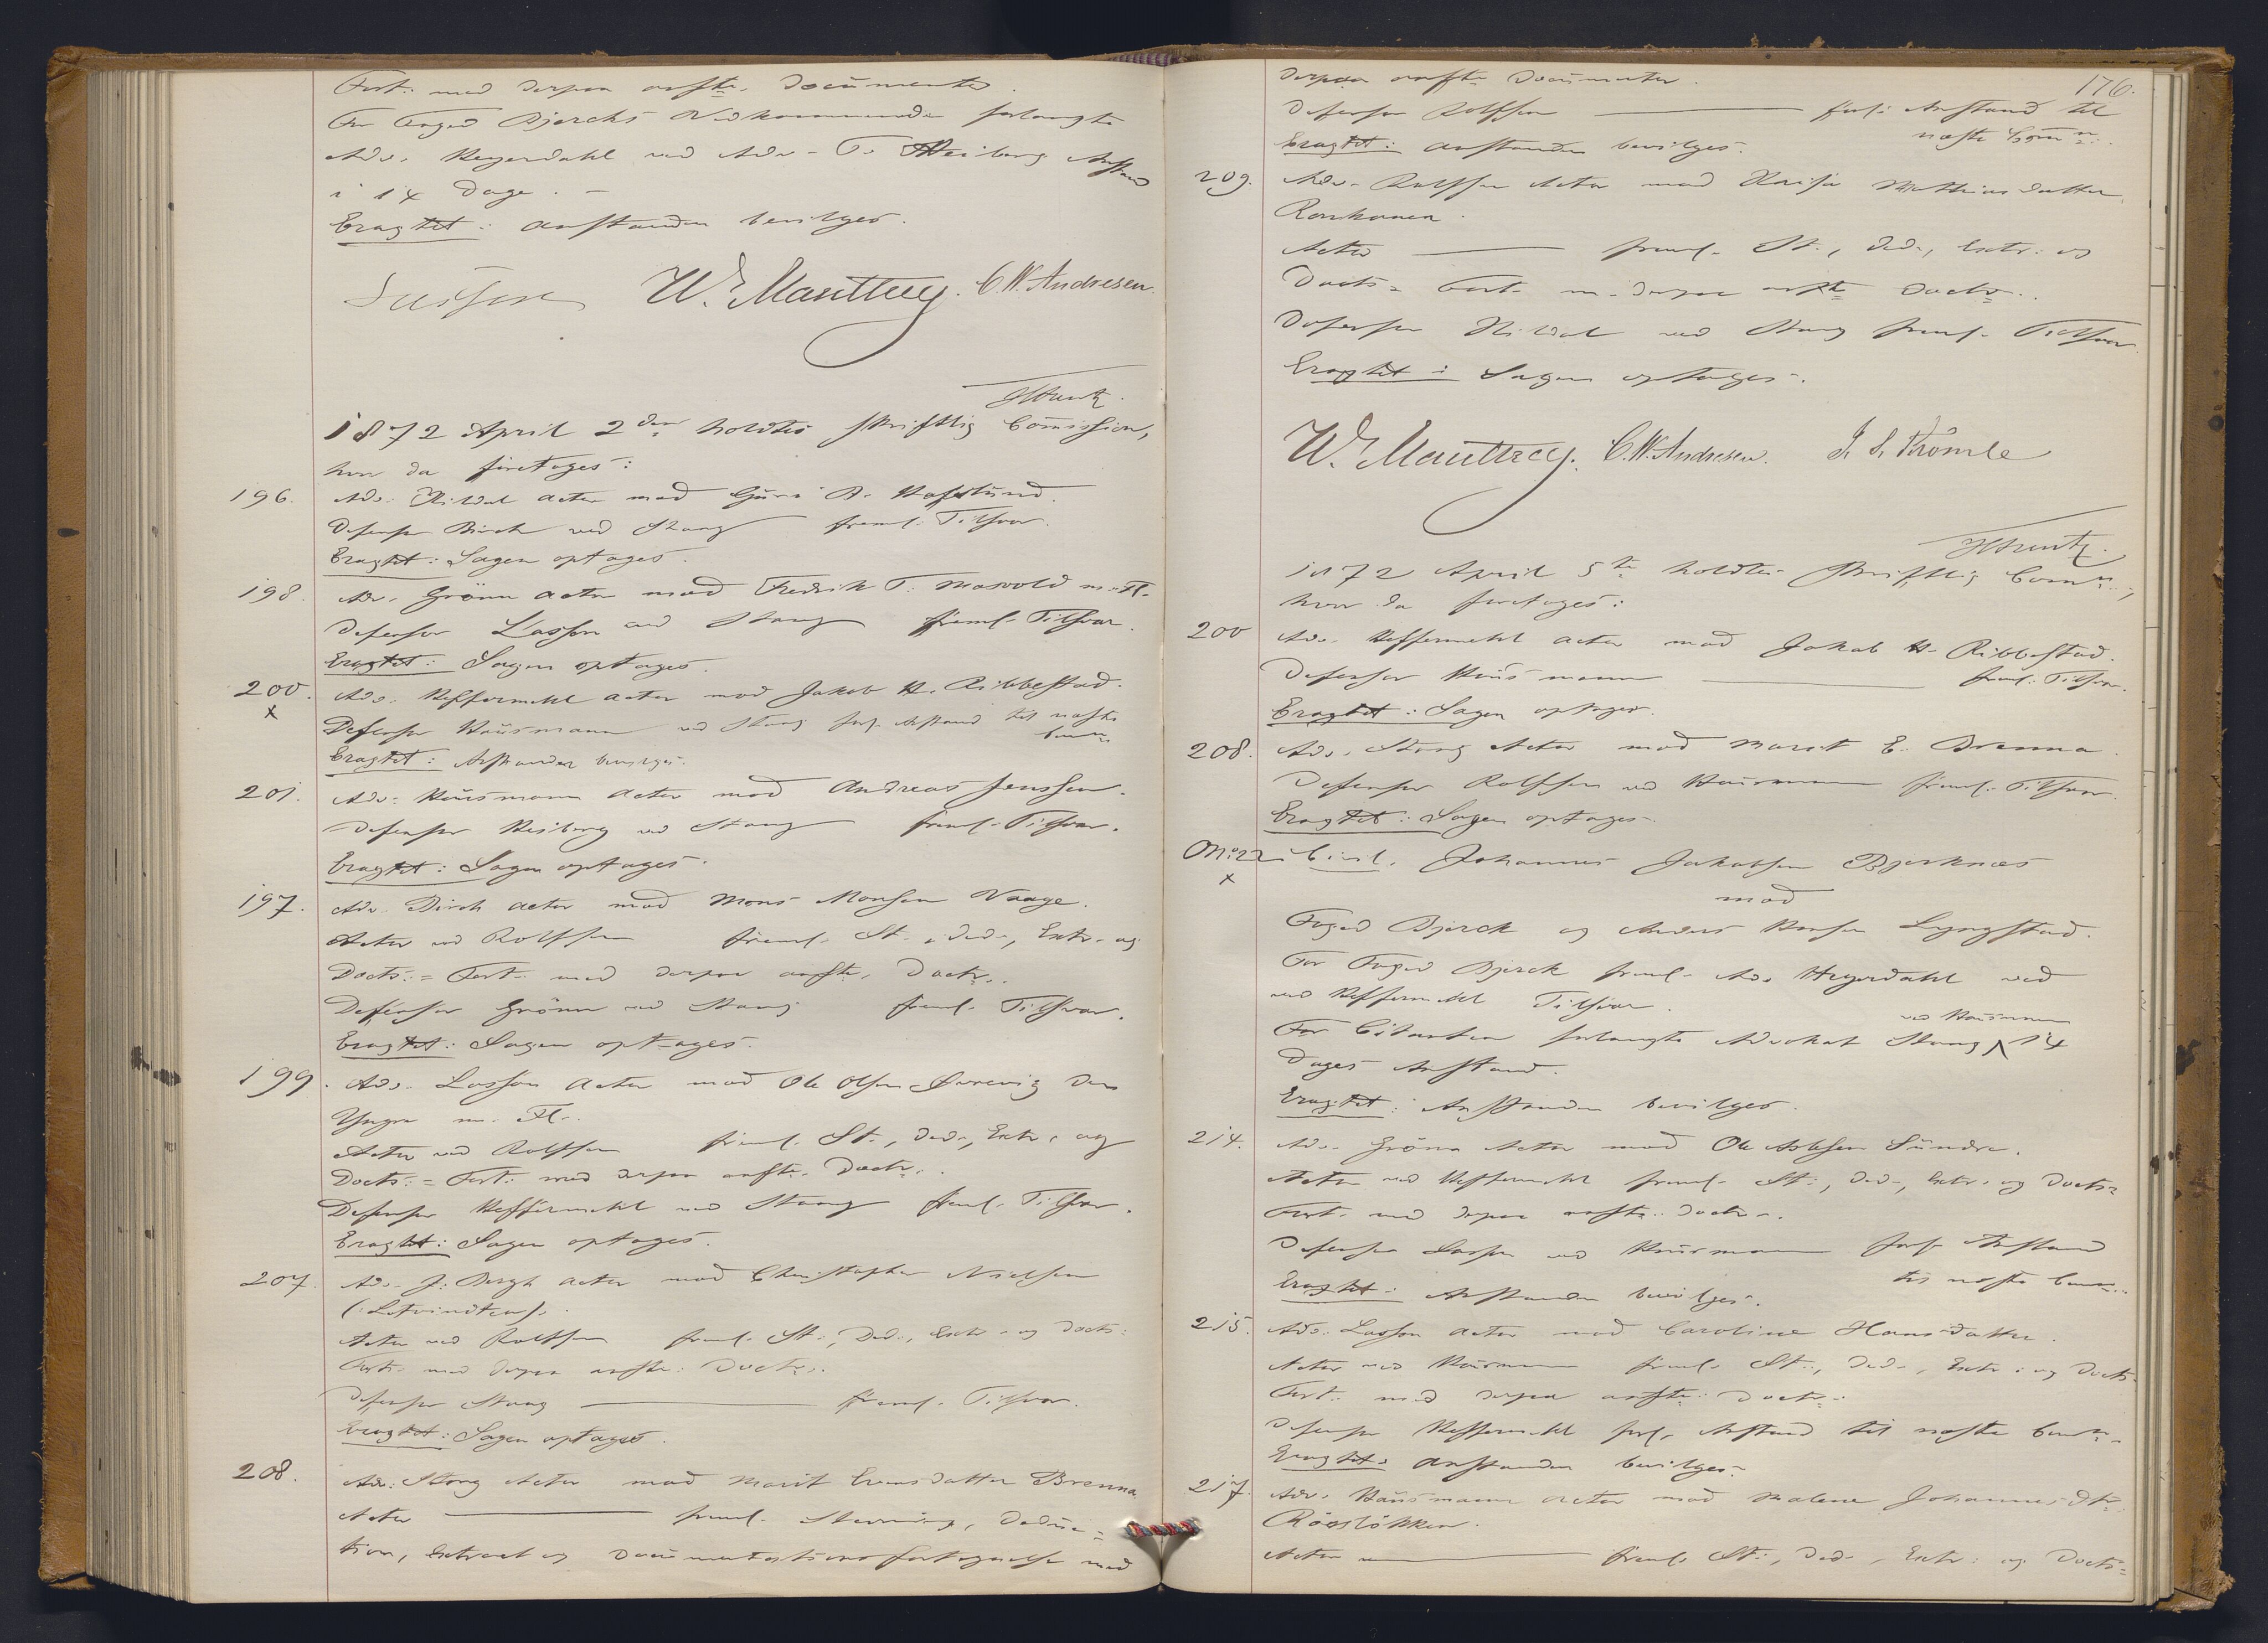 Fort. med derpaa anfte. Documenter.
For Foged Bjercks Vedkommende forlangte
Adv. Heyerdahl ved Adv. T. Heiberg Anstand
i 14 Dage. -
Eragtet: Anstanden bevilges.
W. Manthey. C. W. Andresen.
1872 April 2den holdtes skriftlig Comission,
hvor da foretoges:
196. Adv. Hildal Actor mod Guri B. Hafslund.
Defensor Birch ved Stang freml. Tilsvar.
Eragtet: Sagen optages.
198. Adv. Grönn Actor mod Fredrik T. Moswold m. Fl.
Defensor Lasson ved Stang freml. Tilsvar.
Eragtet: Sagen optages.
200. Adv. Heffermehl Actor mod Jakob H. Ribbestad.
x
Defensor Hausmann ved Stang forl. Anstand til næste
Comn.
Eragtet: Anstanden bevilges.
201. Adv. Hausmann Actor mod Andreas Jenssen.
Defensor Heiberg ved Stang freml. Tilsvar.
Eragtet: Sagen optages.
197. Adv. Birch Actor mod Mons Monsen Vaage.
Actor ved Rolfsen freml. St., Ded., Extr. og
Docts.= Fort. med derpaa anfte. Doctr.
Defensor Grönn ved Stang freml. Tilsvar.
Eragtet: Sagen optages.
199. Adv. Lasson Actor mod Ole Olsen Durevig den
Yngre m. Fl.
Actor ved Rolfsen freml. St., Ded., Extr. og
Docts.= Fort. med derpaa anfte. Doctr.
Defensor Heffermehl ved Stang freml. Tilsvar.
Eragtet: Sagen optages.
207. Adv. J. Bergh Actor mod Christopher Nielsen
Actor ved Rolfsen freml. St., Ded., Extr. og Docts.
Fort. med derpaa anfte. Doctr.
Defensor Stang freml. Tilsvar.
Eragtet: Sagen optages.
208. Adv. Stang Actor mod Marit Evensdatter Brenna
Actor freml. Stevning, Deduc=
tion, Extract og Documentationsfortegnelse med
176.
derpaa anfte Documenter.
Defensor Rolfsen forl. Anstand til
næste Comn.
Eragtet: Anstanden bevilges.
209. Adv. Rolfsen Actor mod Kaisa Mathiasdatter
Actor freml. St., Ded., Extr. og
Docts.= Fort. m. derpaa anfte Doctr.
Defensor Hildal ved Stang freml. Tilsvar.
Eragtet: Sagen optages.
W. Manthey. C. W. Andresen.
1872 April 5te holdtes skriftlig Comn.,
hvor da foretoges:
200 Adv. Heffermehl Actor mod Jakob H. Ribbestad.
Defensor Hausmann freml. Tilsvar.
Eragtet: Sagen optages.
208. Adv. Stang Actor mod Marit E. Brenna.
Defensor Rolfsen ved Hausmann freml. Tilsvar.
Eragtet: Sagen optages.
No. 22 Civil. Johannes Jakobsen Bjerknes
x
mod
Foged Bjerck og Anders Hansen Lyngstad.
For Foged Bjerck freml. Adv. Heyerdahl ved
ved Heffermehl Tilsvar.
ved Hausmann
For Citanten forlangte Advokat Stang 14
Dages Anstand.
Eragtet: Anstanden bevilges.
214. Adv. Grönn Actor mod Ole Aslesen Sundre.
Actor ved Heffermehl freml. St., Ded., Extr. og Docts.=
Fort. med derpaa anfte. Doctr.
Defensor Lasson ved Hausmann forl. Anstand
til næste Comn.
Eragtet: Anstanden bevilges.
215. Adv. Lasson Actor mod Caroline Hansdatter.
Actor ved Hausmann freml. St., Ded., Extr. og Docts.
Fort. med derpaa anfte. Doctr.
Defensor Heffermehl forl. Anstand til næste Comn.
Eragtet: Anstanden bevilges.
217. Adv. Hausmann Actor mod Malene Johannesdtr.
Rösslökken.
Actor freml. St., Ded., Extr. og Docts.=